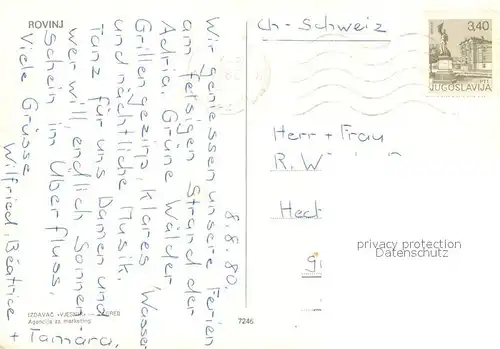 ROVINJ
8.8.80.
Wir geniessen unsere Ferien
am felsigen Strand der
Adria. Grüne Wälder
Grillengezirp, klares Wasser
und nächtliche Musik,
Tanz für uns Damen und
wer will endlich Sonnen-
schein im Überfluss,
Viele Grüsse
Wilfried, Béatrice
+ Tamara,
CH - Schweiz
3,40
JUGOSLAVIJA
Herr + Frau
R. W
Hec
privacy protection
Datenschutz
IZDAVAČ »VJESNIK« — ZAGREB
Agencija za marketing
7246